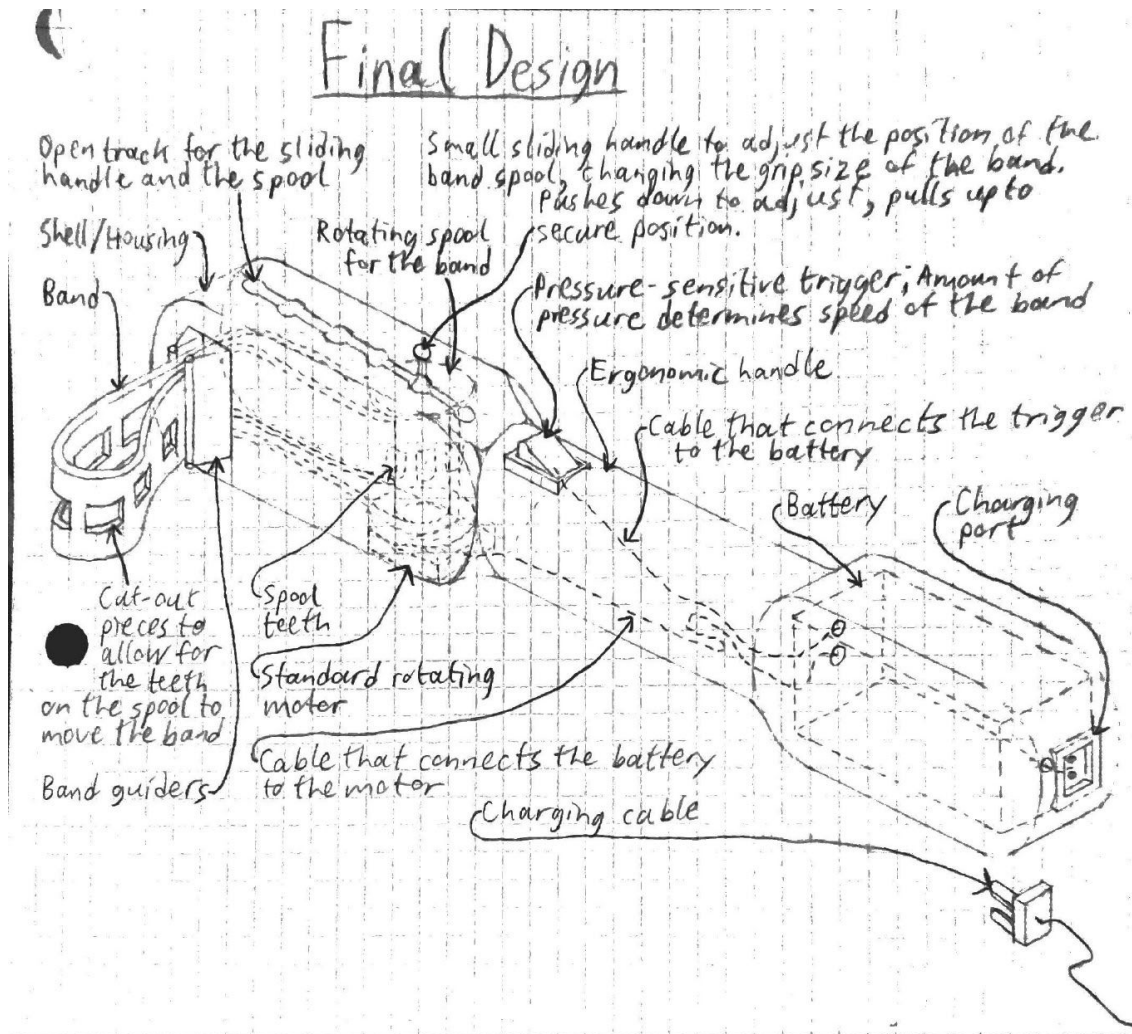 Final Design
Open track for the sliding
handle and the spool
Small sliding handle to adjust the position of the
band spool, changing the grip size of the band.
Pushes down to adjust, pulls up to
secure position.
Shell/Housing
Rotating spool
for the band
Band
Pressure-sensitive trigger; Amount of
pressure determines speed of the band
Ergonomic handle
Cable that connects the trigger
to the battery
Battery
Charging
port
Cut-out
pieces to
allow for
the teeth
on the spool to
move the band
Spool
teeth
Standard rotating
motor
Band guiders
Cable that connects the battery
to the motor
Charging cable